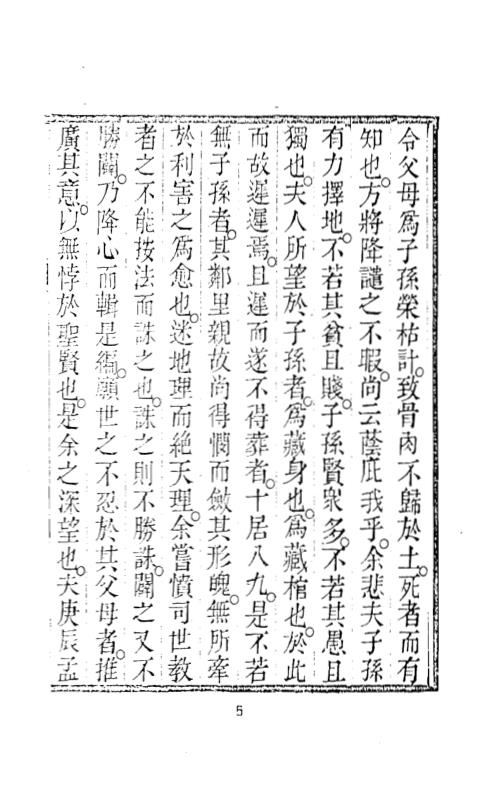 令父母爲子孫榮枯計。致骨肉不歸於土。死者而有
知也。方將降譴之不暇。尚云蔭庇我乎。余悲夫子孫
有力擇地。不若其貧且賤。子孫賢衆多。不若其愚且
獨也。夫人所望於子孫者。爲藏身也。爲藏棺也。於此
而故遲遲焉。且遲而遂不得葬者。十居八九。是不若
無子孫者。其鄰里親故尚得憫而斂其形魄。無所牽
於利害之爲愈也。迷地理而絶天理。余嘗憤司世教
者之不能按法而誅之也。誅之則不勝誅。闢之又不
勝闢。乃降心而輯是編。願世之不忍於其父母者。推
廣其意。以無悖於聖賢也。是余之深望也。夫庚辰孟
5